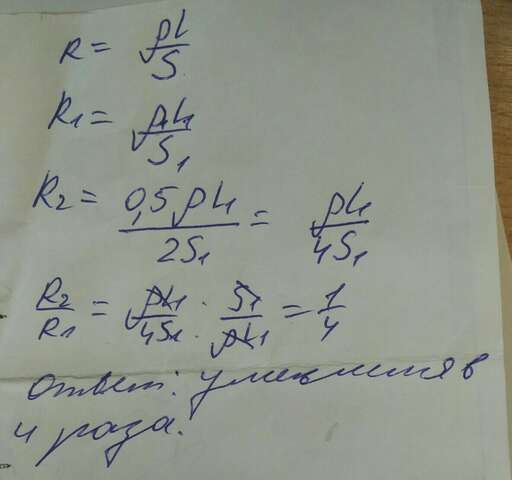 R = ρL/S
R1 = ρL1/S1
R2 = 0,5ρL1/2S1 = ρL1/4S1
R2/R1 = ρL1/4S1 · S1/ρL1 = 1/4
Ответ: уменьшится в
4 раза.